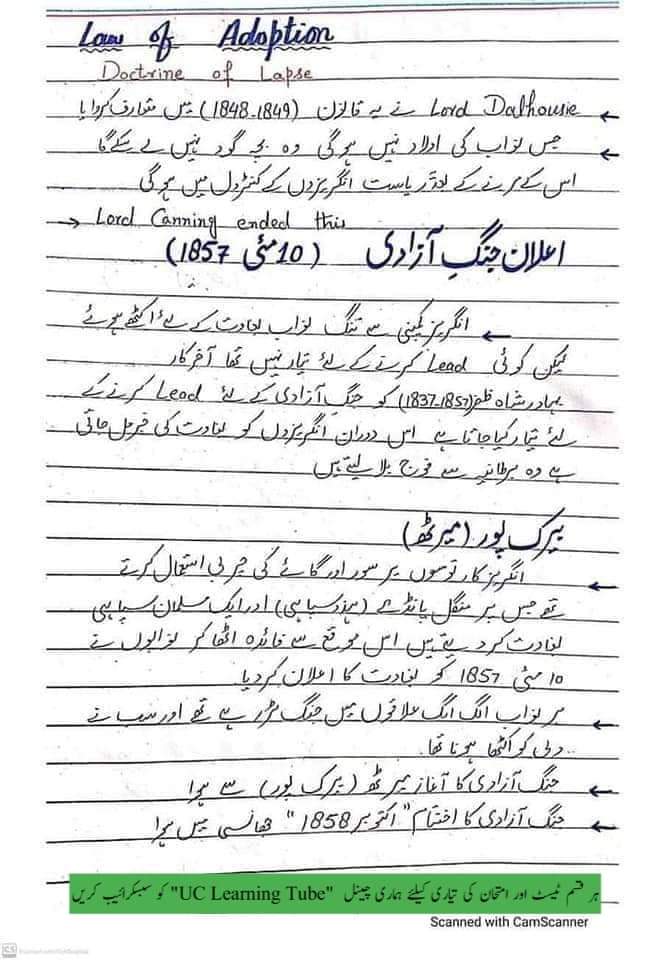 Law of Adoption
Doctrine of Lapse
← Lord Dalhousie نے یہ قانون (1848-1849) میں متعارف کروایا
← جس نواب کی اولاد نہیں ہوگی وہ بچہ گود نہیں لے سکے گا
اس کے مرنے کے بعد ریاست انگریزوں کے کنٹرول میں ہوگی
→ Lord Canning ended this
اعلان جنگِ آزادی (10 مئی 1857)
← انگریز کمپنی سے تنگ نواب بغاوت کے لئے اکٹھے ہوئے
لیکن کوئی Lead کرنے کے لئے تیار نہیں تھا آخر کار
بہادر شاہ ظفر (1837-1857) کو جنگِ آزادی کے لئے Lead کرنے کے
لئے تیار کیا جاتا ہے اس دوران انگریزوں کو بغاوت کی خبر مل جاتی
ہے وہ برطانیہ سے فوج بلا لیتے ہیں
بیرک پور (میرٹھ)
← انگریز کارتوسوں پر سور اور گائے کی چربی استعمال کرتے
تھے جس پر منگل پانڈے (ہندو سپاہی) اور ایک مسلمان سپاہی
بغاوت کر دیتے ہیں اس موقع سے فائدہ اٹھا کر نوابوں نے
10 مئی 1857 کو بغاوت کا اعلان کر دیا
← ہر نواب الگ الگ علاقوں میں جنگ لڑ رہے تھے اور سب نے
دہلی کو اکٹھا ہونا تھا.
← جنگ آزادی کا آغاز میرٹھ (بیرک پور) سے ہوا
← جنگ آزادی کا اختتام "اکتوبر 1858" جھانسی میں ہوا
ہر قسم ٹیسٹ اور امتحان کی تیاری کیلئے ہماری چینل "UC Learning Tube" کو سبسکرائیب کریں
Scanned with CamScanner
CS